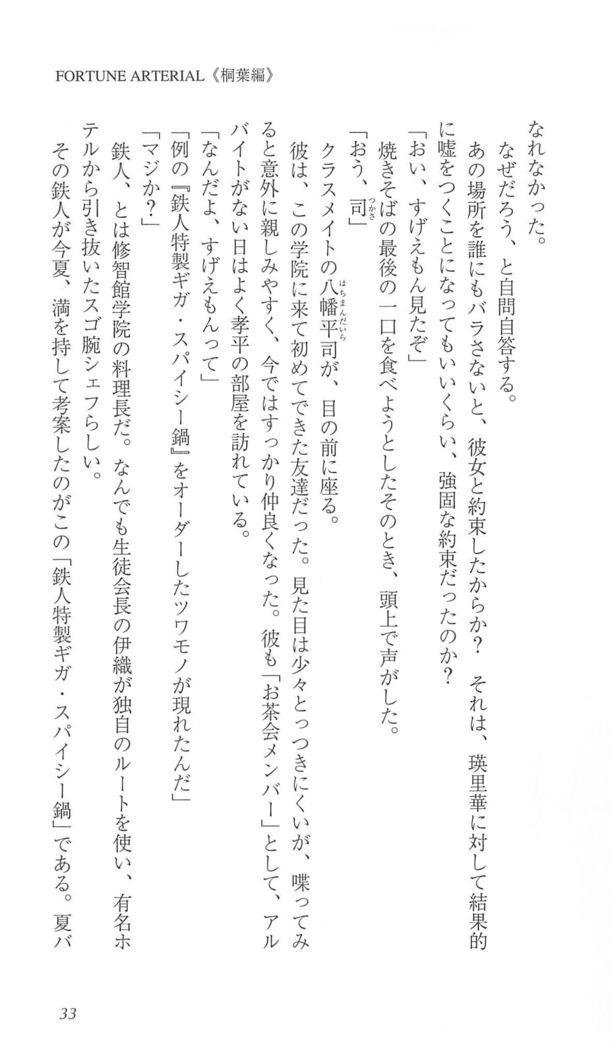 FORTUNE ARTERIAL《桐葉編》
なれなかった。
なぜだろう、と自問自答する。
あの場所を誰にもバラさないと、彼女と約束したからか？　それは、瑛里華に対して結果的
に嘘をつくことになってもいいくらい、強固な約束だったのか？
「おい、すげえもん見たぞ」
焼きそばの最後の一口を食べようとしたそのとき、頭上で声がした。
「おう、司」
つかさ
クラスメイトの八幡平司が、目の前に座る。
はちまんだいら
彼は、この学院に来て初めてできた友達だった。見た目は少々とっつきにくいが、喋ってみ
ると意外に親しみやすく、今ではすっかり仲良くなった。彼も「お茶会メンバー」として、アル
バイトがない日はよく孝平の部屋を訪れている。
「なんだよ、すげえもんって」
「例の『鉄人特製ギガ・スパイシー鍋』をオーダーしたツワモノが現れたんだ」
「マジか？」
鉄人、とは修智館学院の料理長だ。なんでも生徒会長の伊織が独自のルートを使い、有名ホ
テルから引き抜いたスゴ腕シェフらしい。
その鉄人が今夏、満を持して考案したのがこの「鉄人特製ギガ・スパイシー鍋」である。夏バ
33